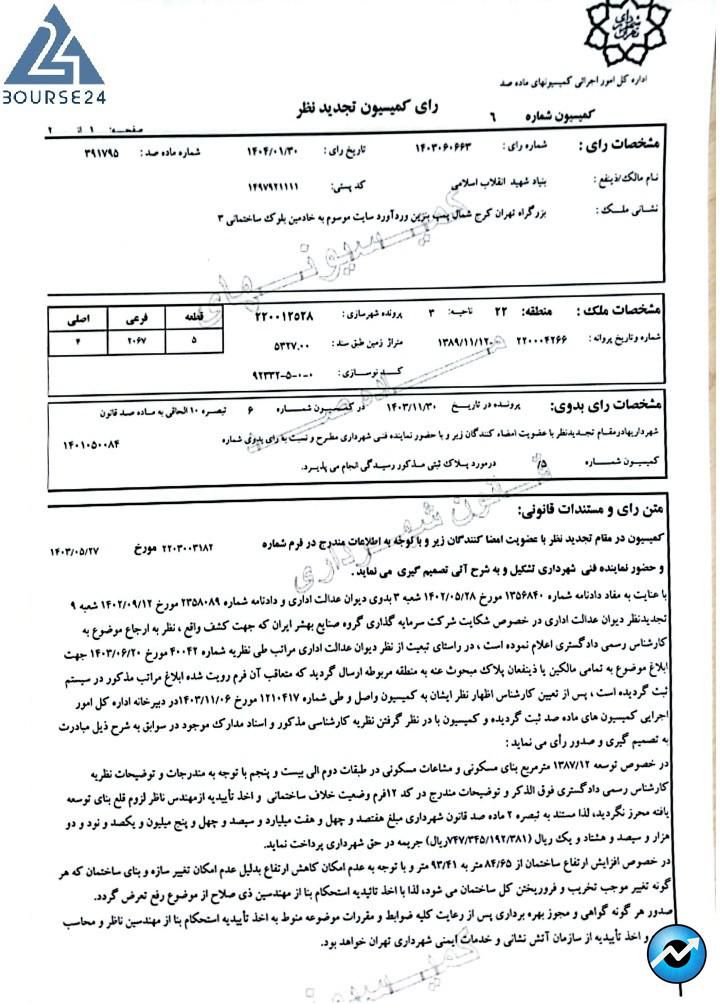 BOURSE24
اداره کل امور اجرائی کمیسیونهای ماده صد
رای کمیسیون تجدید نظر
کمیسیون شماره ۶
صفحه: ۱ از ۲
مشخصات رای : شماره رای : ۱۴۰۳۰۶۰۶۶۳ تاریخ رای : ۱۴۰۴/۰۱/۳۰ شماره ماده صد : ۳۹۱۷۹۵
نام مالک/ذینفع : بنیاد شهید انقلاب اسلامی کد پستی: ۱۴۹۷۹۲۱۱۱۱
نشانی ملک : بزرگراه تهران کرج شمال پمپ بنزین وردآورد سایت موسوم به خادمین بلوک ساختمانی ۳
مشخصات ملک : منطقه: ۲۲ ناحیه: ۳ پرونده شهرسازی : ۲۲۰۰۱۲۵۲۸ قطعه فرعی اصلی
شماره وتاریخ پروانه : ۲۲۰۰۰۴۲۶۶ ۱۳۸۹/۱۱/۱۲ متراژ زمین طبق سند : ۵۳۲۷.۰۰ ۵ ۲۰۶۷ ۴
کد نوسازی : ۰-۰-۵-۹۲۳۳۲
مشخصات رای بدوی: پرونده در تاریخ ۱۴۰۳/۱۱/۳۰ در کمیسیون شماره ۶ تبصره ۱۰ الحاقی به ماده صد قانون
شهرداریهادرمقام تجدیدنظر با عضویت امضاء کنندگان زیر و با حضور نماینده فنی شهرداری مطرح و نسبت به رای بدوی شماره ۱۴۰۱۰۵۰۰۸۴
کمیسیون شماره ۵/ درمورد پلاک ثبتی مذکور رسیدگی انجام می پذیرد.
متن رای و مستندات قانونی:
کمیسیون در مقام تجدید نظر با عضویت امضا کنندگان زیر و با توجه به اطلاعات مندرج در فرم شماره ۲۲۰۳۰۰۳۱۸۲ مورخ ۱۴۰۳/۰۵/۲۷
و حضور نماینده فنی شهرداری تشکیل و به شرح آتی تصمیم گیری می نماید .
با عنایت به مفاد دادنامه شماره ۱۳۵۶۸۴۰ مورخ ۱۴۰۲/۰۵/۲۸ شعبه ۳ بدوی دیوان عدالت اداری و دادنامه شماره ۲۳۵۸۰۸۹ مورخ ۱۴۰۲/۰۹/۱۲ شعبه ۹
تجدیدنظر دیوان عدالت اداری در خصوص شکایت شرکت سرمایه گذاری گروه صنایع بهشر ایران که جهت کشف واقع ، نظر به ارجاع موضوع به
کارشناس رسمی دادگستری اعلام نموده است ، در راستای تبعیت از نظر دیوان عدالت اداری مراتب طی نظریه شماره ۴۰۰۴۲ مورخ ۱۴۰۳/۰۶/۲۰ جهت
ابلاغ موضوع به تمامی مالکین یا ذینفعان پلاک مبحوث عنه به منطقه مربوطه ارسال گردید که متعاقب آن فرم رویت شده ابلاغ مراتب مذکور در سیستم
ثبت گردیده است ، پس از تعیین کارشناس اظهار نظر ایشان به کمیسیون واصل و طی شماره ۱۲۱۰۴۱۷ مورخ ۱۴۰۳/۱۱/۰۶در دبیرخانه اداره کل امور
اجرایی کمیسیون های ماده صد ثبت گردیده و کمیسیون با در نظر گرفتن نظریه کارشناسی مذکور و اسناد مدارک موجود در سوابق به شرح ذیل مبادرت
به تصمیم گیری و صدور رأی می نماید :
در خصوص توسعه ۱۳۸۷/۱۲ مترمربع بنای مسکونی و مشاعات مسکونی در طبقات دوم الی بیست و پنجم با توجه به مندرجات و توضیحات نظریه
کارشناس رسمی دادگستری فوق الذکر و توضیحات مندرج در کد ۱۲فرم وضعیت خلاف ساختمانی و اخذ تأییدیه ازمهندس ناظر لزوم قلع بنای توسعه
یافته محرز نگردید، لذا مستند به تبصره ۲ ماده صد قانون شهرداری مبلغ هفتصد و چهل و هفت میلیارد و سیصد و چهل و پنج میلیون و یکصد و نود و دو
هزار و سیصد و هشتاد و یک ریال (۷۴۷/۳۴۵/۱۹۲/۳۸۱ریال) جریمه در حق شهرداری پرداخت نماید.
در خصوص افزایش ارتفاع ساختمان از ۸۴/۶۵ متر به ۹۳/۴۱ متر و با توجه به عدم امکان کاهش ارتفاع بدلیل عدم امکان تغییر سازه و بنای ساختمان که هر
گونه تغییر موجب تخریب و فروریختن کل ساختمان می شود، لذا با اخذ تائیدیه استحکام بنا از مهندسین ذی صلاح از موضوع رفع تعرض گردد.
صدور هر گونه گواهی و مجوز بهره برداری پس از رعایت کلیه ضوابط و مقررات موضوعه منوط به اخذ تأییدیه استحکام بنا از مهندسین ناظر و محاسب
و اخذ تأییدیه از سازمان آتش نشانی و خدمات ایمنی شهرداری تهران خواهد بود.